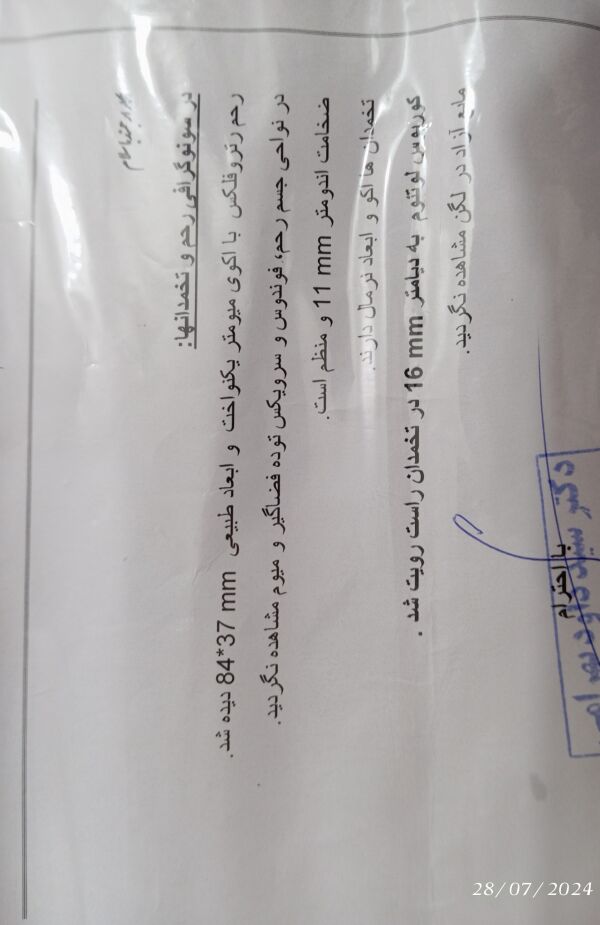 در سونوگرافی رحم و تخمدانها:
رحم رتروفلکس با اکوی میومتر یکنواخت و ابعاد طبیعی 84*37 mm دیده شد.
در نواحی جسم رحم، فوندوس و سرویکس توده فضاگیر و میوم مشاهده نگردید.
ضخامت اندومتر 11 mm و منظم است.
تخمدان ها اکو و ابعاد نرمال دارند.
کورپوس لوتئوم به دیامتر 16 mm در تخمدان راست رویت شد .
مایع آزاد در لگن مشاهده نگردید.
با احترام
دکتر سید داود
28/07/2024